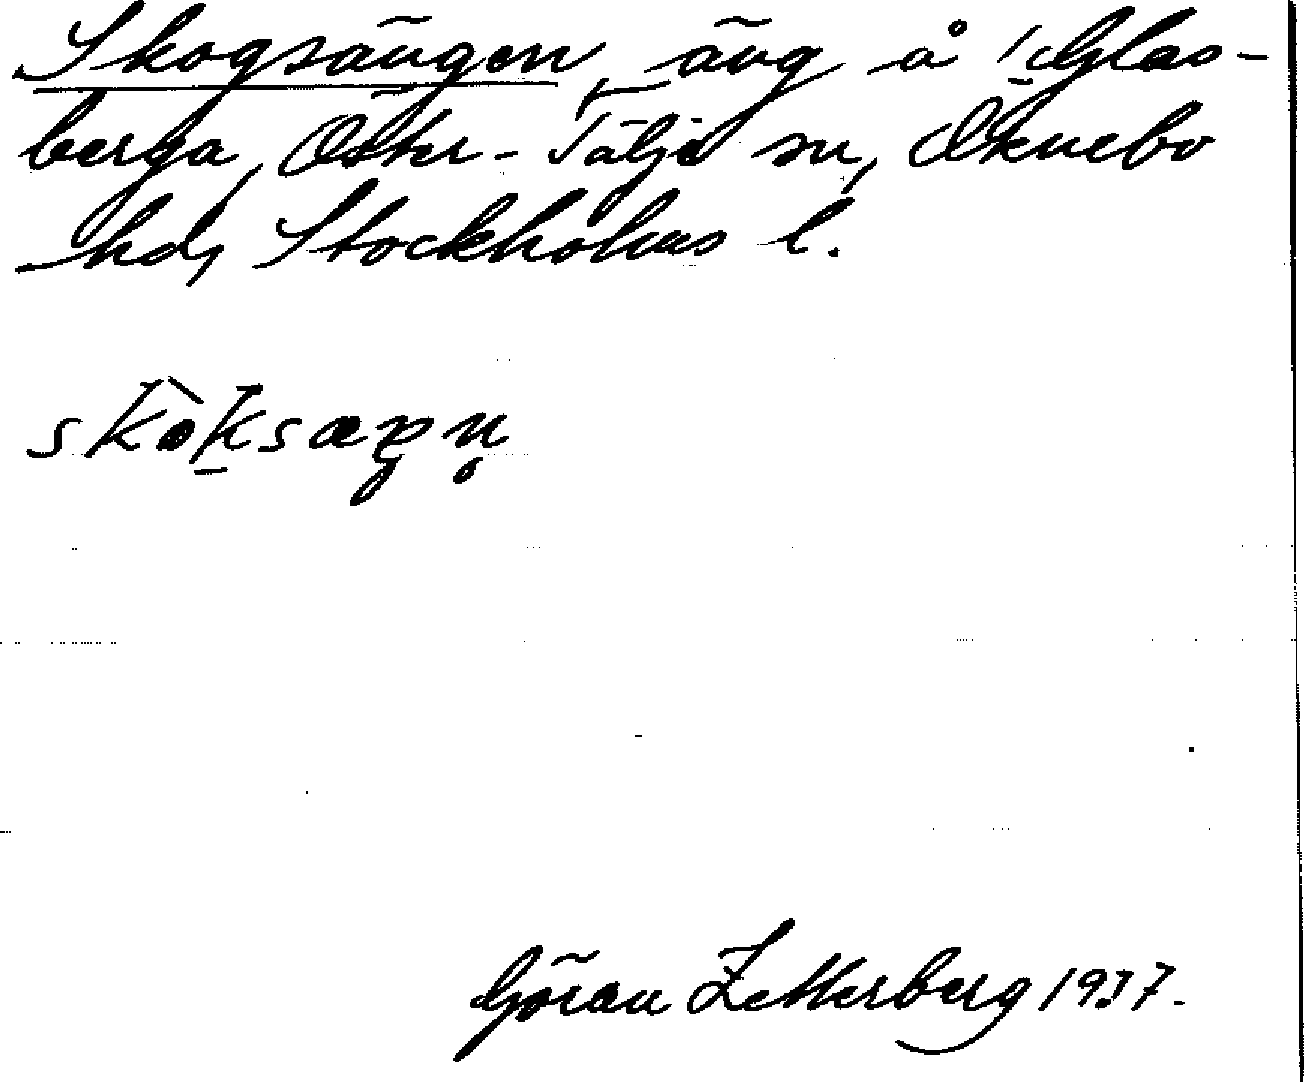 Skogsängen, äng å 1 Glas-
berga, Öster-Tälje sn, Öknebo
hd, Stockholms l.
skòksæŋn̥
Göran Zetterberg 1937.